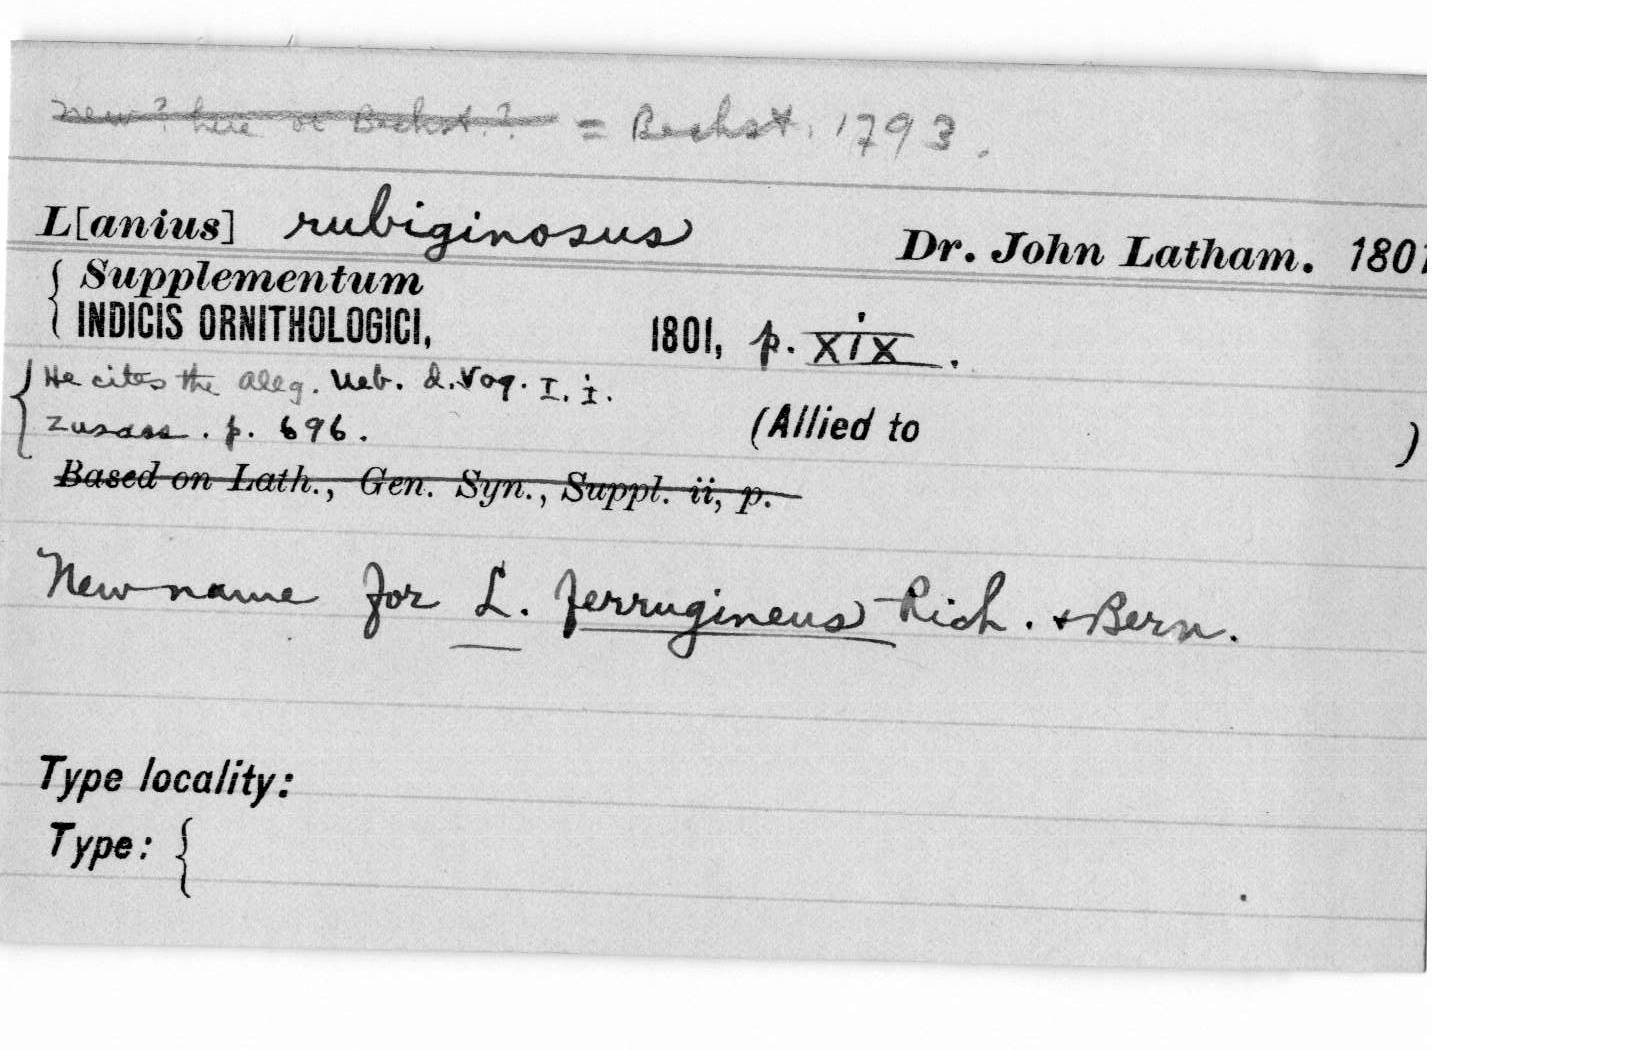 new? here or Bechst.? = Bechst. 1793.
L[anius] rubiginosus Dr. John Latham. 1801
{ Supplementum
INDICIS ORNITHOLOGICI, 1801, p. xix.
{ He cites the Allg. Ueb. d. Vog. I. i.
Zusass. p. 696. (Allied to )
Based on Lath., Gen. Syn., Suppl. ii, p.
New name for L. ferrugineus Rich. + Bern.
Type locality:
Type: {